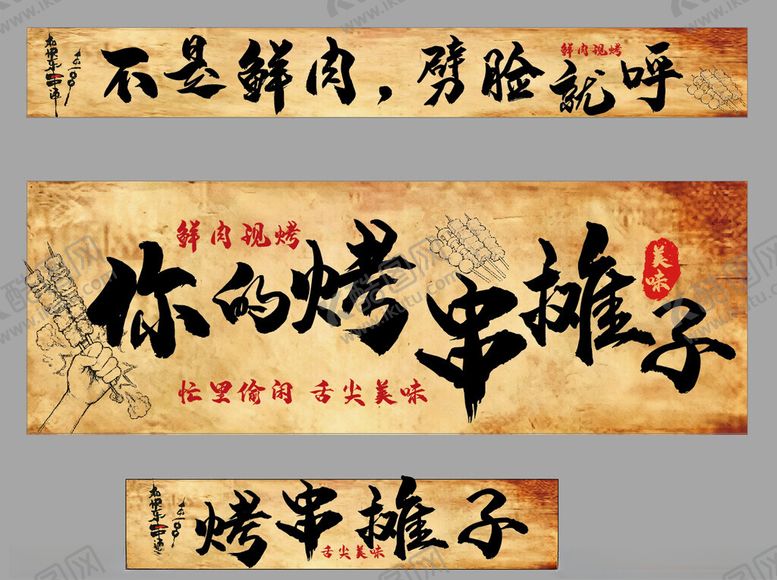 不是鲜肉，劈脸就呼
鲜肉现烤
鲜肉现烤
你的烤串摊子
美味
忙里偷闲 舌尖美味
烤串摊子
舌尖美味